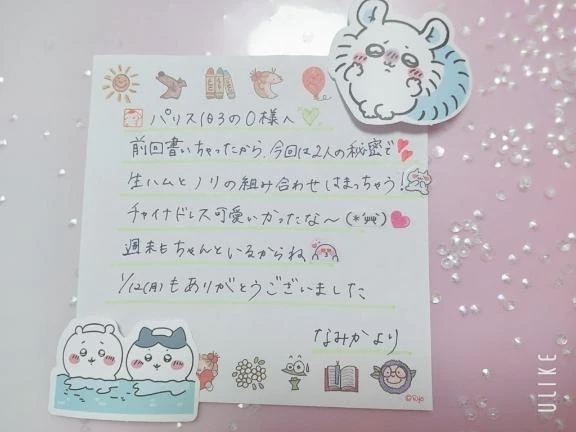 パリス183の0様へ
前回書いちゃったから、今回は2人の秘密で
生ハムとノリの組み合わせはまっちゃう!
チャイナドレス可愛いかったな〜(*'ψψ')
週末もちゃんといるからね
1/12(月)もありがとうございました
なみかより
©Ryo
ULIKE